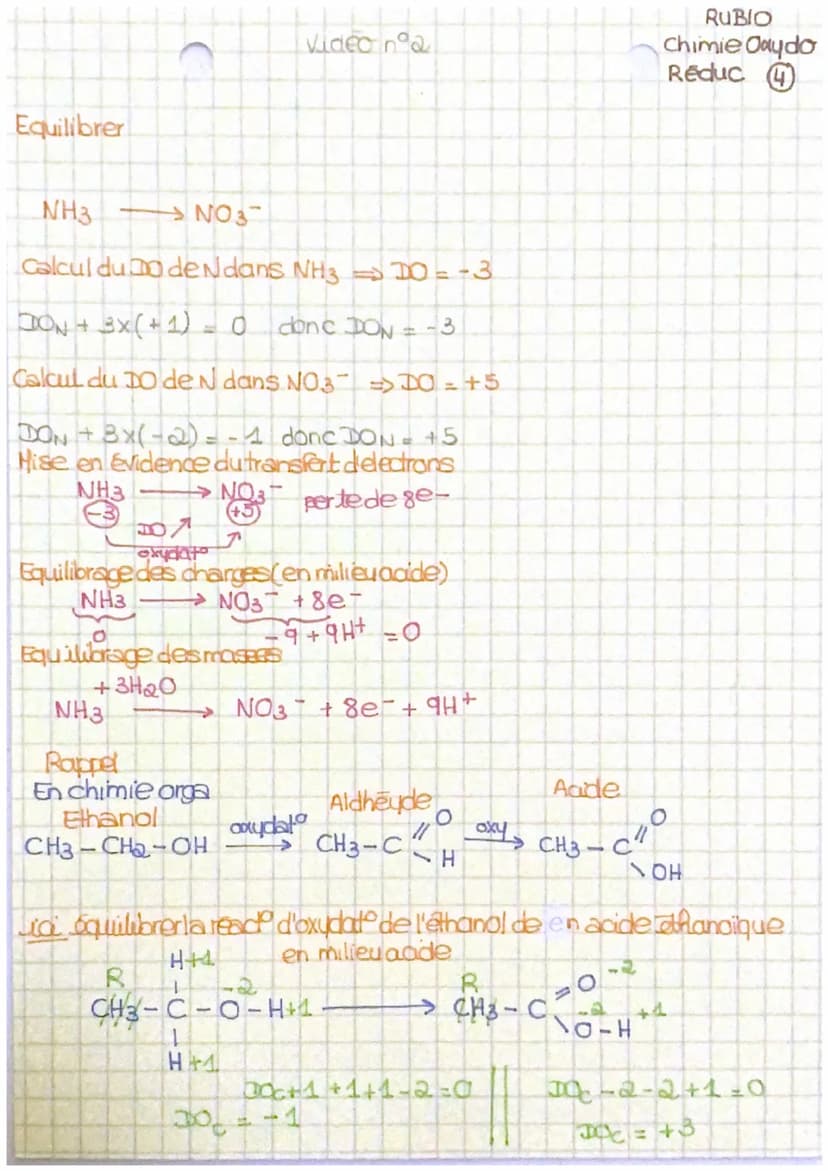 Vidéo n°2
RUBIO
Chimie Oxydo
Réduc 4
Equilibrer
NH3 ⟶ NO3⁻
Calcul du DO de N dans NH3 ⇒ DO = -3
DON + 3x(+1) = 0 donc DON = -3
Calcul du DO de N dans NO3⁻ ⇒ DO = +5
DON + 3x(-2) = -1 donc DON = +5
Mise en évidence du transfert d'électrons
NH3 ⟶ NO3⁻ perte de 8e-
-3 DO ↗ +5
oxydat°
Equilibrage des charges (en milieu acide)
NH3 ⟶ NO3⁻ + 8e⁻
0 -9 + 9H⁺ = 0
Equilibrage des masses
+ 3H2O
NH3 ⟶ NO3⁻ + 8e⁻ + 9H⁺
Rappel
En chimie orga
Ethanol Aldhéyde Acide
CH3 – CH2 – OH oxydat° ⟶ CH3 – C O H oxy ⟶ CH3 – C O OH
ici équilibrer la réact° d'oxydat° de l'éthanol de en acide éthanoïque
en milieu acide
H+1
R -2 R O -2
CH3 – C – O – H+1 ⟶ CH3 – C -2 O – H +1
H+1
DOC+1+1+1-2=0 || DOC-2-2+1=0
DOC = -1 DOC = +3